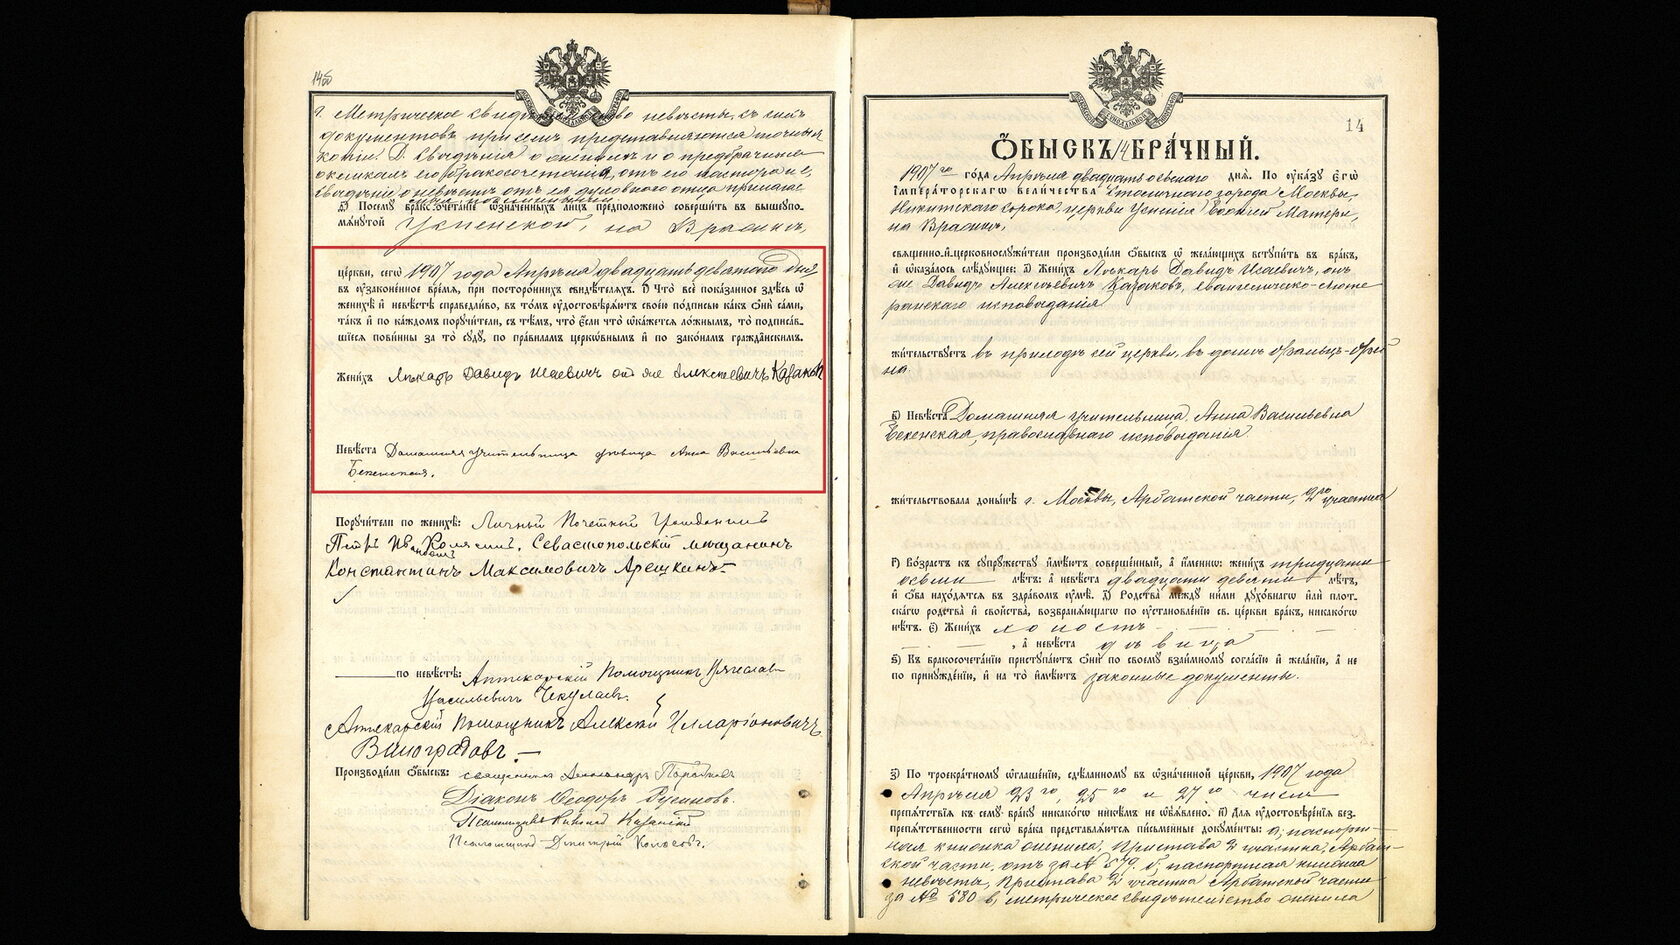 г. Метрическое свидѣтельство невѣсты, съ сихъ
документовъ при семъ представляются точныя
копіи. Д. Свѣдѣнія о женихѣ и о предбрачныхъ
его бракосочетанія, отъ его пастора и е,
свѣдѣніе о невѣстѣ отъ ея духовнаго отца
д҃) Посему бракосочетаніе ѡзначенныхъ лицъ предположено совершить въ вышеупо-
мянутой Успенской, на Вражкѣ,
церкви, сегѡ 1907 года Апрѣля двадцать девятаго дня
въ узаконенное время, при постороннихъ свидѣтеляхъ. Что все показанное здѣсь ѡ
женихѣ и невѣстѣ справедливо, въ томъ удостовѣряютъ своею подписью какъ они сами,
такъ и по каждомъ поручители, съ тѣмъ, что если что ѡкажется ложнымъ, то подписав-
шіеся повинны за то суду, по правиламъ церковнымъ и по законамъ гражданскимъ.
Женихъ Лѣкарь Давидъ Исаевичъ онъ же Алексѣевичъ Казаковъ
Невѣста Домашняя учительница дѣвица Анна Васильевна
Бекенская.
Поручители по женихѣ: Личный Почетный Гражданинъ
Петръ Ивановичъ Севастопольскій мѣщанинъ
Константинъ Максимовичъ Арешкинъ
по невѣстѣ: Аптекарскій Помощникъ Вячеславъ
Васильевичъ Чекулаевъ.
Аптекарскій помощникъ Алексѣй Илларіоновичъ
Виноградовъ
Производили ѡбыскъ: священникъ Александръ
Діаконъ Ѳеодоръ Русиновъ.
Псаломщикъ Николай Казанскій
Псаломщикъ Дмитрій
14
ѠБЫСКЪ 14 БРАЧНЫЙ.
1907 го года Апрѣля двадцать осьмаго дня. По указу Егѡ
Императорскагѡ Величества Столичнаго города Москвы,
Никитскаго сорока, церкви Успенія Божіей Матери,
на Вражкѣ,
священно-и-церковнослужители производили ѡбыскъ ѡ желающихъ вступить въ бракъ,
и ѡказалось слѣдующее: а҃) Женихъ Лѣкарь Давидъ Исаевичъ, онъ
же Давидъ Алексѣевичъ Казаковъ, евангелическо-люте
ранскаго исповѣданія
жительствуетъ въ приходѣ сей церкви, въ домѣ Фальцъ-Фей
на
в҃) Невѣста Домашняя учительница, Анна Васильевна
Бекенская, православнаго исповѣданія
жительствовала донынѣ г. Москвы, Арбатской части, 2го участка
г҃) Возрастъ къ супружеству имѣютъ совершенный, а именно: женихъ тридцати
осьми лѣтъ: а невѣста двадцати девяти лѣтъ,
и оба находятся въ здравомъ умѣ. д҃) Родства между ними духовнагѡ или плот-
скагѡ родства и свойства, возбраняющагѡ по установленію св. церкви бракъ, никакогѡ
нѣтъ. є҃) Женихъ холостъ
, а невѣста дѣвица
ѕ҃) Къ бракосочетанію приступаютъ они по своему взаимному согласію и желанію, а не
по принужденію, и на то имѣютъ законные документы.
з҃) По троекратному ѡглашенію, сдѣланному въ ѡзначенной церкви, 1907 года
Апрѣля 23 го, 25 го и 27 го числа
препятствія къ сему браку никакогѡ никѣмъ не ѡбъявлено. и҃) Для удостовѣренія без-
препятственности сегѡ брака представляются письменные документы: а, паспорт-
ная книжка жениха, Пристава 2 участка, Арбат-
ской части, отъ за № 579. б, паспортная книжка
невѣсты, Пристава 2 участка Арбатской части
за № 580 в, метрическое свидѣтельство жениха